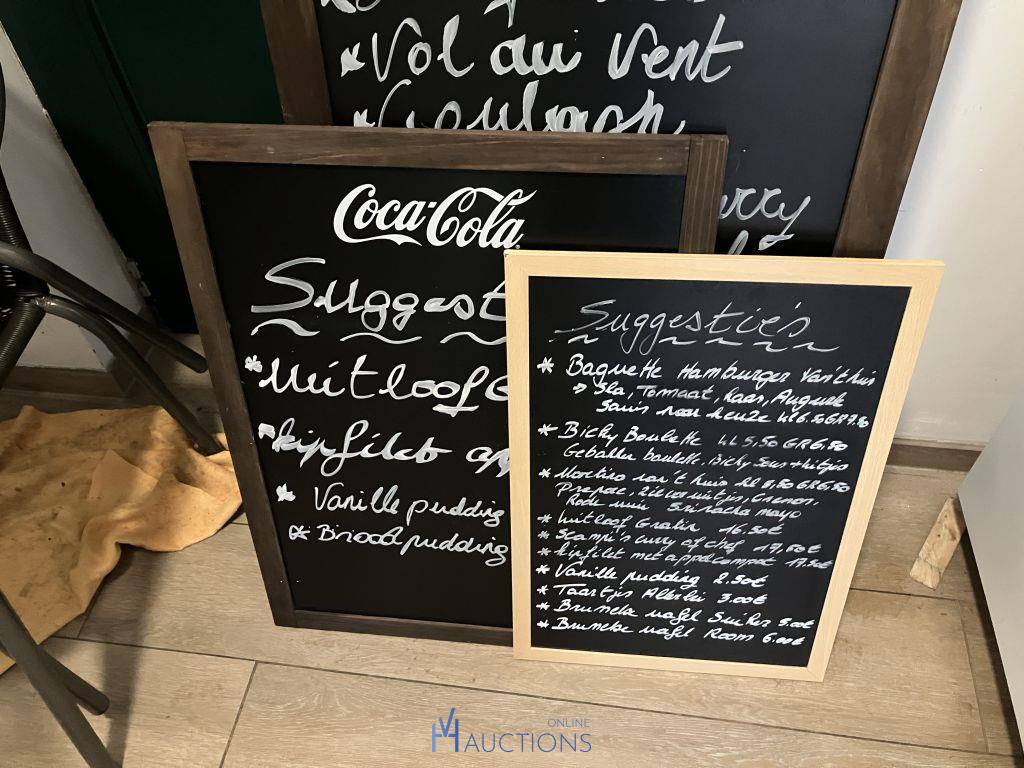 * Vol au vent
* Goulash
Coca-Cola
Suggest
* Witloof G
* kipfilet ap
* Vanille pudding
* Broodpudding
Suggestiës
* Baguette Hamburger van't huis
> Sla, Tomaat, kaas, Augurk
Saus naar keuze kl 6.50 GR
* Bicky Boulette kl 5,50 GR 6,50
Geballen boulette, Bicky Saus + uitjes
van't huis kl GR 6.50
Rode Sriracha mayo
* Witloof Gratin 16.50€
* Scampi's curry of chef 19,50€
* kipfilet met appelcompot 17.50€
* Vanille pudding 2.50€
* Taartjes Allerlei 3.00€
* Brusselse wafel Suiker 5.00€
* Brusselse wafel Room 6.00€
VH
ONLINE
AUCTIONS